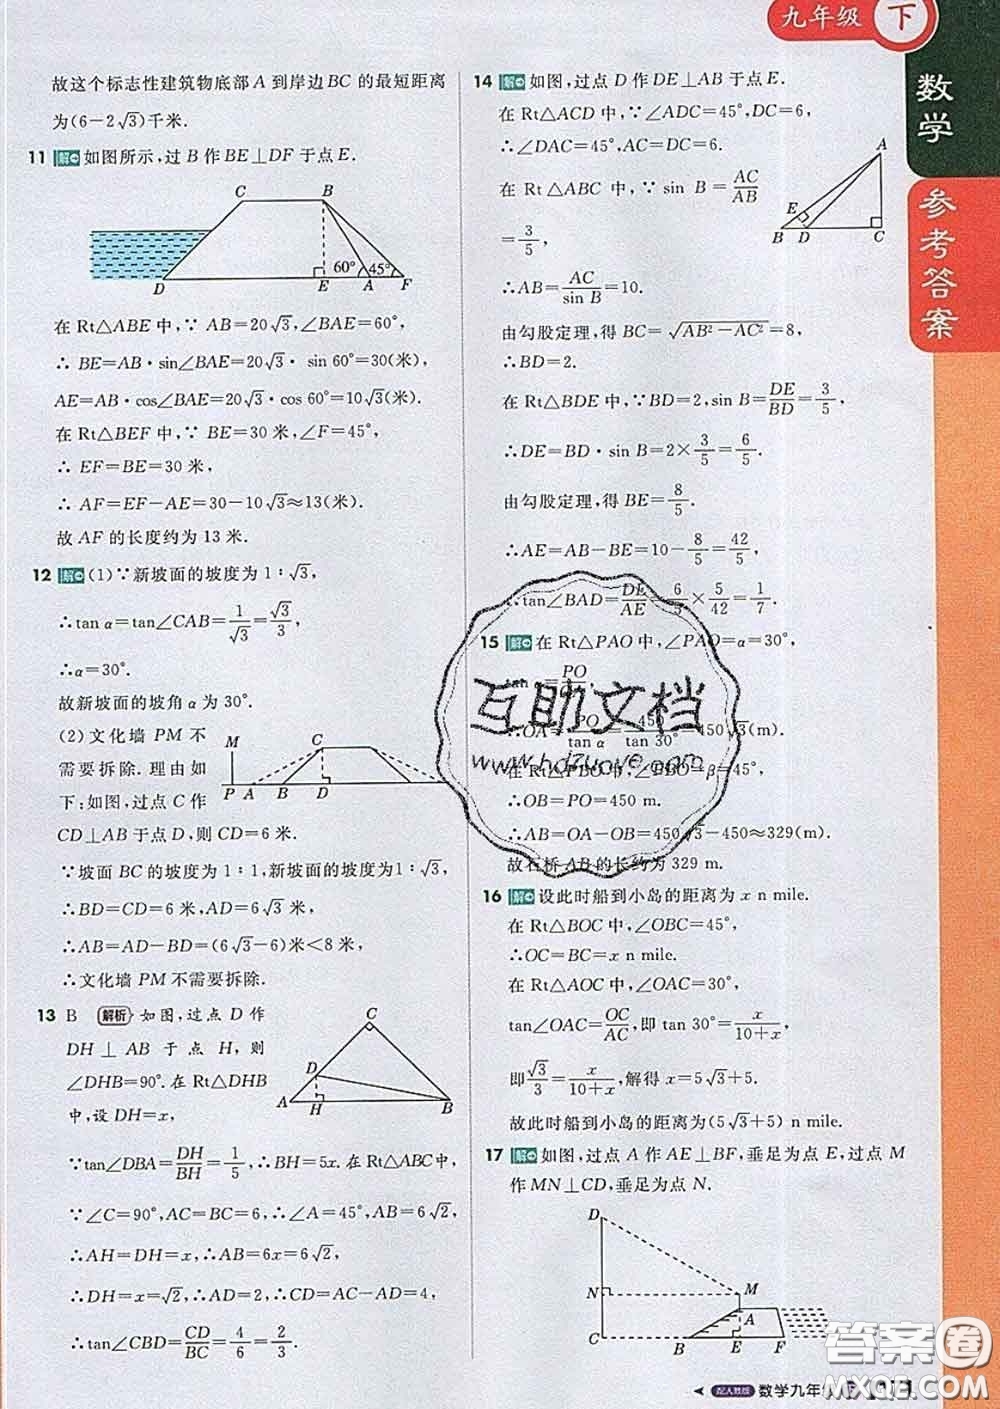 九年级 下
数学
参考答案
故这个标志性建筑物底部 A 到岸边 BC 的最短距离
为(6-2√3)千米.
11 解 如图所示,过 B 作 BE⊥DF 于点 E.
C B
60° 45°
D E A F
在 Rt△ABE 中,∵ AB=20√3,∠BAE=60°,
∴ BE=AB·sin∠BAE=20√3·sin 60°=30(米),
AE=AB·cos∠BAE=20√3·cos 60°=10√3(米).
在 Rt△BEF 中,∵ BE=30 米,∠F=45°,
∴ EF=BE=30 米,
∴ AF=EF-AE=30-10√3≈13(米).
故 AF 的长度约为 13 米.
12 解 (1)∵新坡面的坡度为 1∶√3,
∴tan α=tan∠CAB=1/√3=√3/3,
∴α=30°.
故新坡面的坡角 α 为 30°.
(2)文化墙 PM 不
需要拆除.理由如
下:如图,过点 C 作
M C
P A B D
CD⊥AB 于点 D,则 CD=6 米.
∵坡面 BC 的坡度为 1∶1,新坡面的坡度为1∶√3,
∴BD=CD=6 米,AD=6√3 米,
∴AB=AD-BD=(6√3-6)米<8 米,
∴文化墙 PM 不需要拆除.
13 B 解析 如图,过点 D 作
DH⊥AB 于点 H,则
∠DHB=90°.在 Rt△DHB
中,设 DH=x,
C
D
A H B
∵tan∠DBA=DH/BH=1/5,∴BH=5x.在 Rt△ABC 中,
∵∠C=90°,AC=BC=6,∴∠A=45°,AB=6√2,
∴AH=DH=x,∴AB=6x=6√2,
∴DH=x=√2,∴AD=2,∴CD=AC-AD=4,
∴tan∠CBD=CD/BC=4/6=2/3.
14 解 如图,过点 D 作DE⊥AB 于点E.
在 Rt△ACD 中,∵∠ADC=45°,DC=6,
∴∠DAC=45°,AC=DC=6.
在 Rt△ABC 中,∵sin B=AC/AB
=3/5,
A
E
B D C
∴AB=AC/sin B=10.
由勾股定理,得 BC=√AB²-AC²=8,
∴BD=2.
在 Rt△BDE 中,∵BD=2,sin B=DE/BD=3/5,
∴DE=BD·sin B=2×3/5=6/5,
由勾股定理,得 BE=8/5.
∴AE=AB-BE=10-8/5=42/5,
∴tan∠BAD=DE/AE=6/5×5/42=1/7.
15 解 在 Rt△PAO 中,∠PAO=α=30°,
tan α=PO/OA,
∴OA=PO/tan α=450/tan 30°=450√3(m).
在 Rt△PBO 中,∠PBO=β=45°,
∴OB=PO=450 m.
∴AB=OA-OB=450√3-450≈329(m).
故石桥 AB 的长约为 329 m.
16 解 设此时船到小岛的距离为 x n mile.
在 Rt△BOC 中,∠OBC=45°,
∴OC=BC=x n mile.
在 Rt△AOC 中,∠OAC=30°,
tan∠OAC=OC/AC,即 tan 30°=x/(10+x),
即√3/3=x/(10+x),解得 x=5√3+5.
故此时船到小岛的距离为(5√3+5) n mile.
17 解 如图,过点 A 作 AE⊥BF,垂足为点 E,过点 M
作 MN⊥CD,垂足为点 N.
D
N M
A
C B E F
互助文档
www.hdzuoye.com
答案圈
配人教版 数学九年级